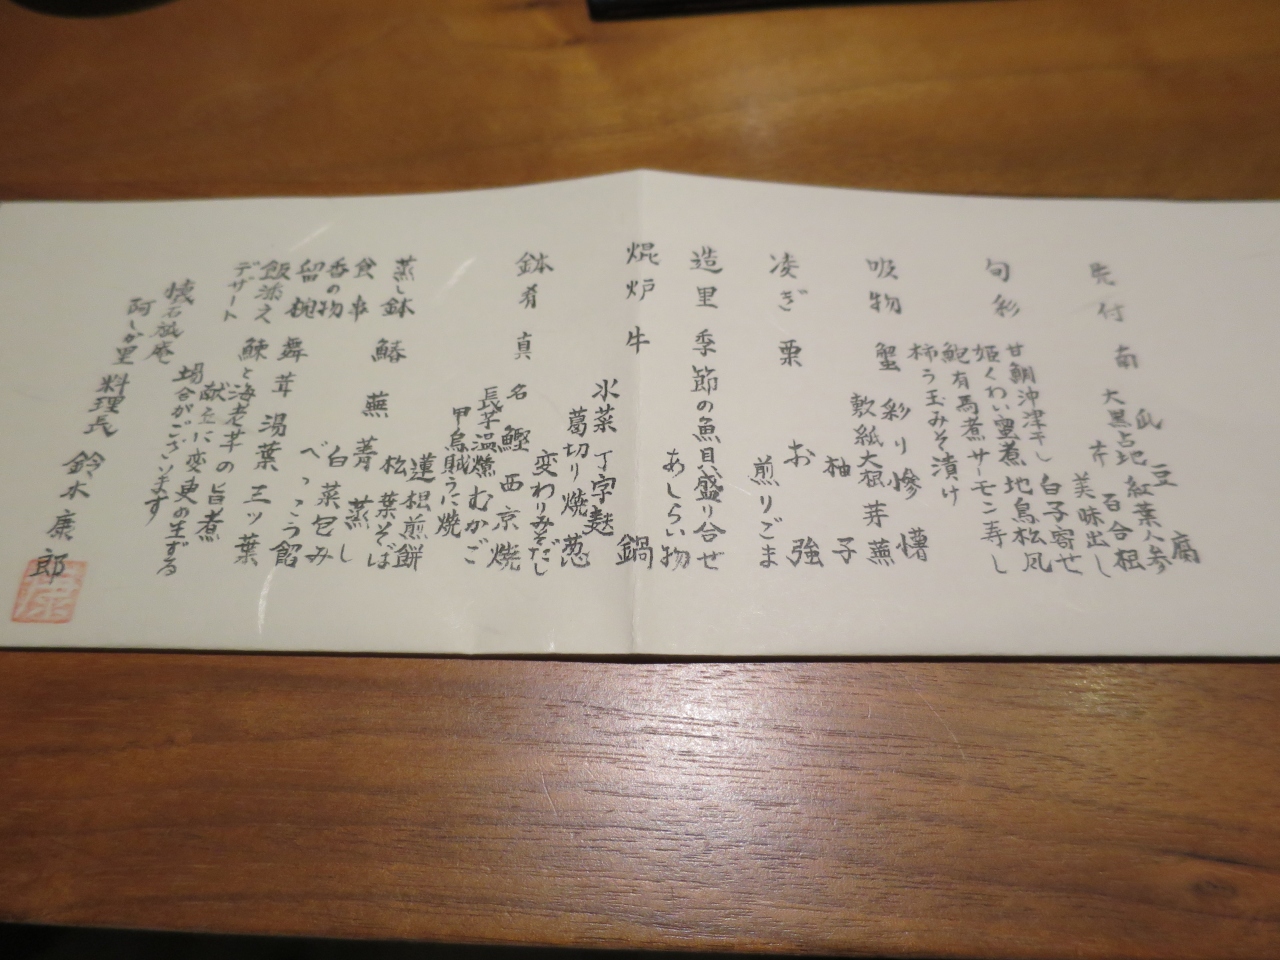 先付 南瓜豆腐
大黒占地 紅葉人参
芹 百合根
美味出し
旬彩 白子寄せ
甘鯛沖津干し 地鳥松風
姫くわい蜜煮 サーモン寿し
鮑有馬煮
柿う玉みそ漬け
吸物 蟹彩り慘
敷紙大根 芽蕪
柚子
凌ぎ 栗お強
煎りごま
造里 季節の魚貝盛り合せ
あしらい物
焜炉 牛鍋
水菜 丁字麩
葛切り 焼葱
変わりみそだし
鉢肴 真名鰹西京焼
長芋温燻 むかご
甲烏賊うに焼
蓮根煎餅
松葉そば
蒸し鉢 鰆蕪菁蒸し
白菜包み
べっこう餡
舞茸 湯葉 三ッ葉
食事 鰊と海老芋の旨煮
香の物
留椀
飯添え
デザート
献立に変更の生ずる
場合がございます
懐石 庵
阿しか里
料理長 鈴木康郎